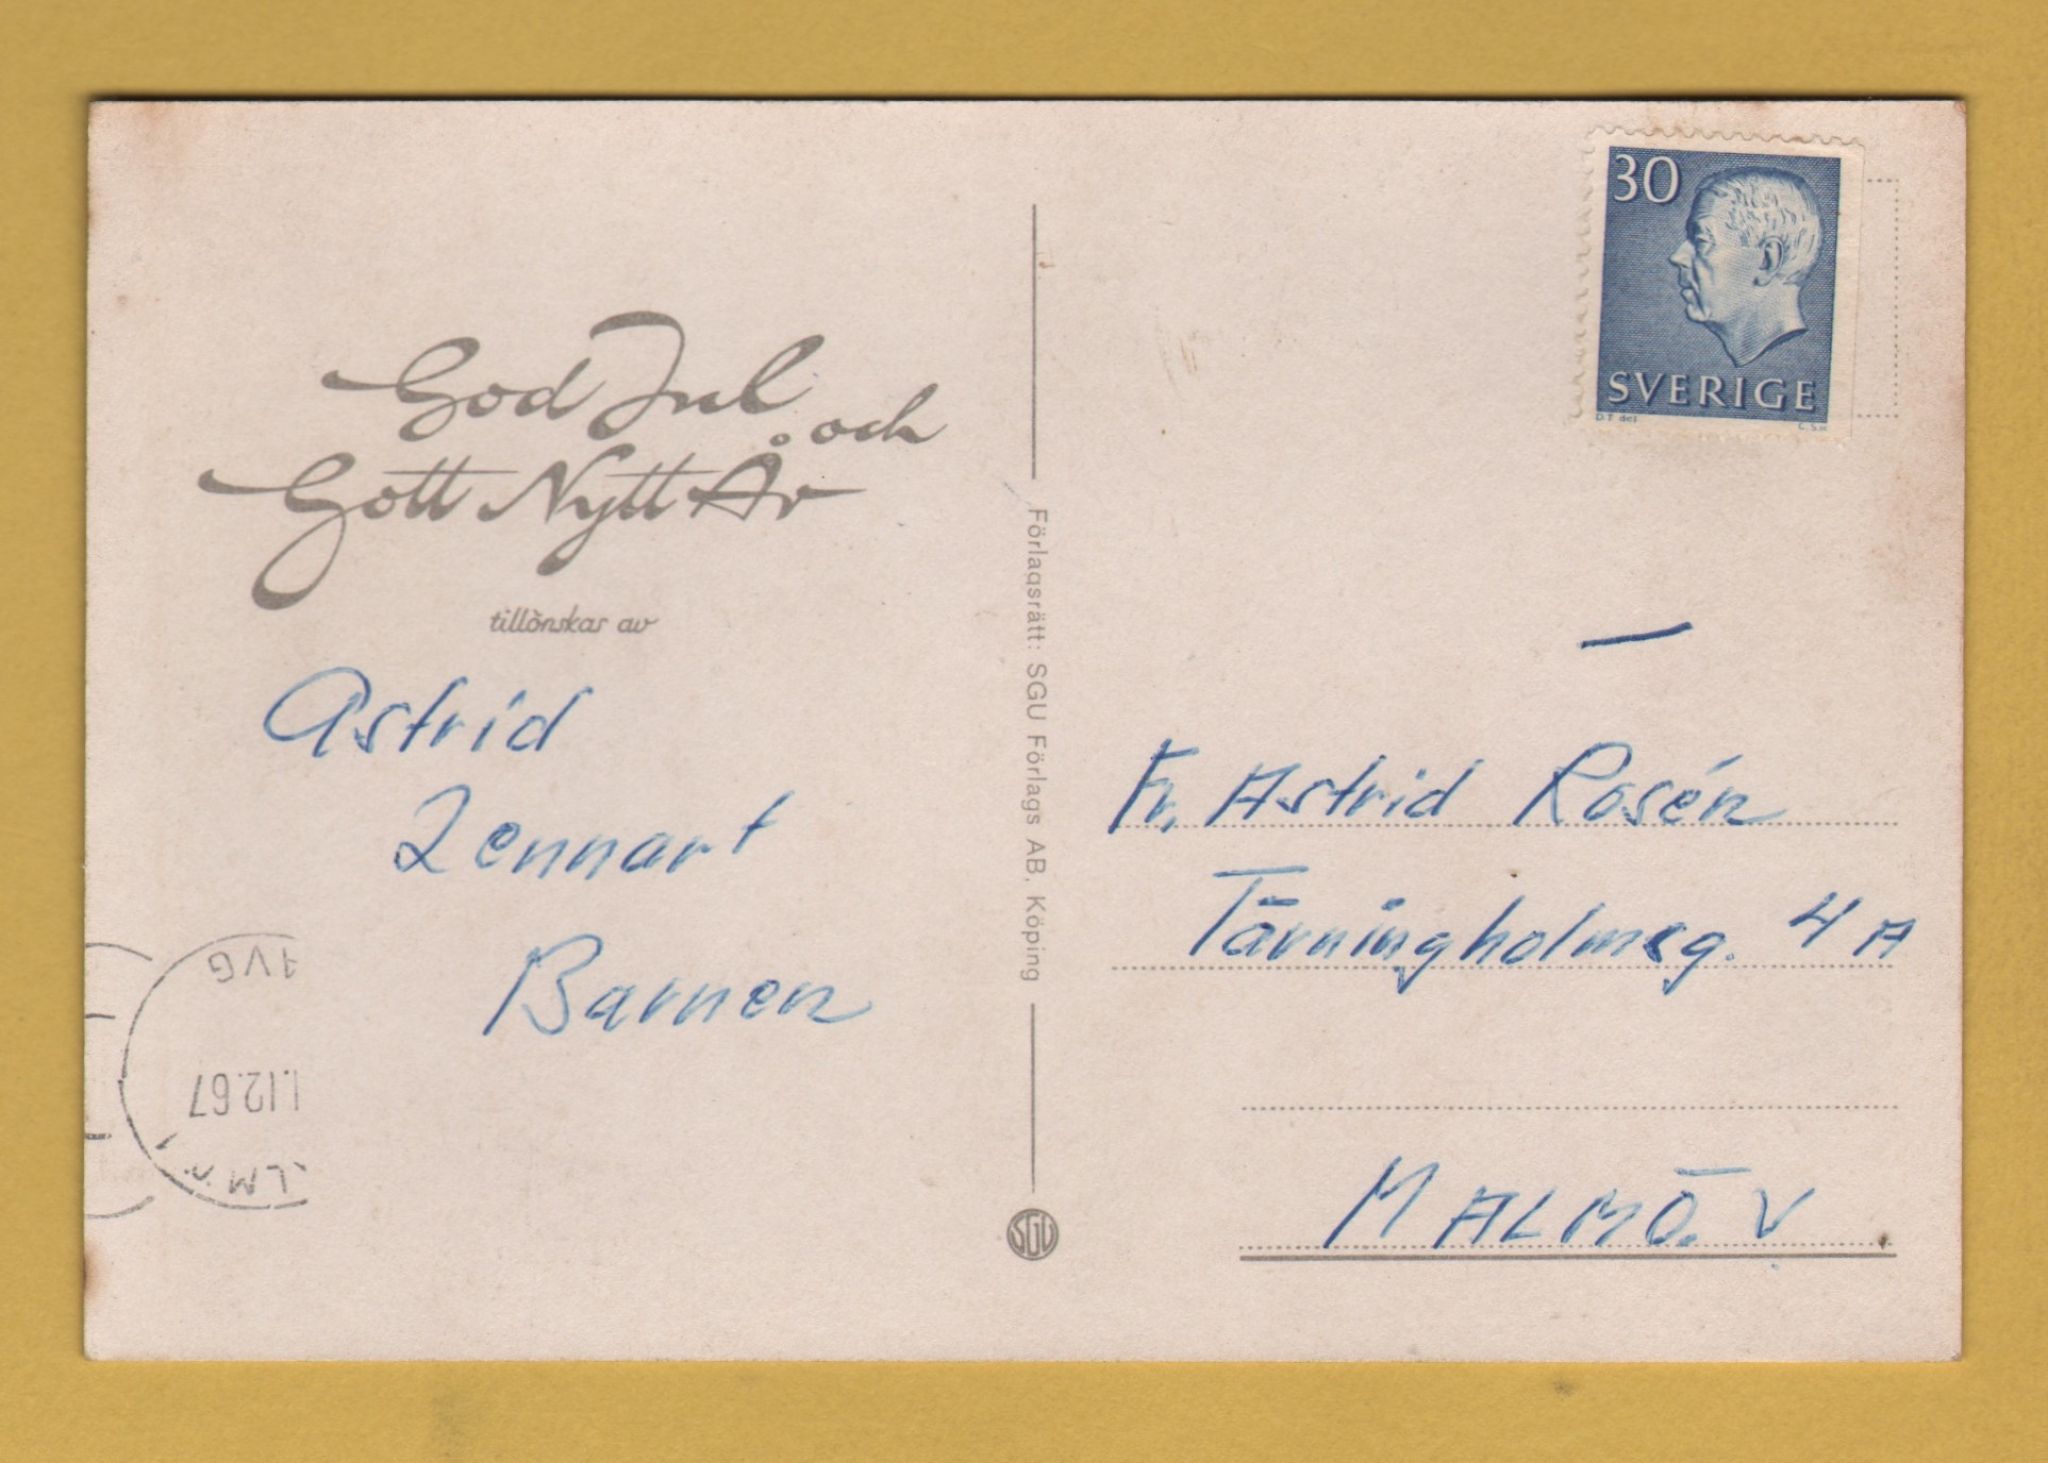 God Jul och
Gott Nytt År
tillönskas av
Astrid
Lennart
Barnen
1VG
1.12.67
LM
Förlagsrätt: SGU Förlags AB, Köping
SGU
30
SVERIGE
D.T del
C.S.sc
Fr. Astrid Rosén
Tärningholmsg. 4 A
MALMÖ. V